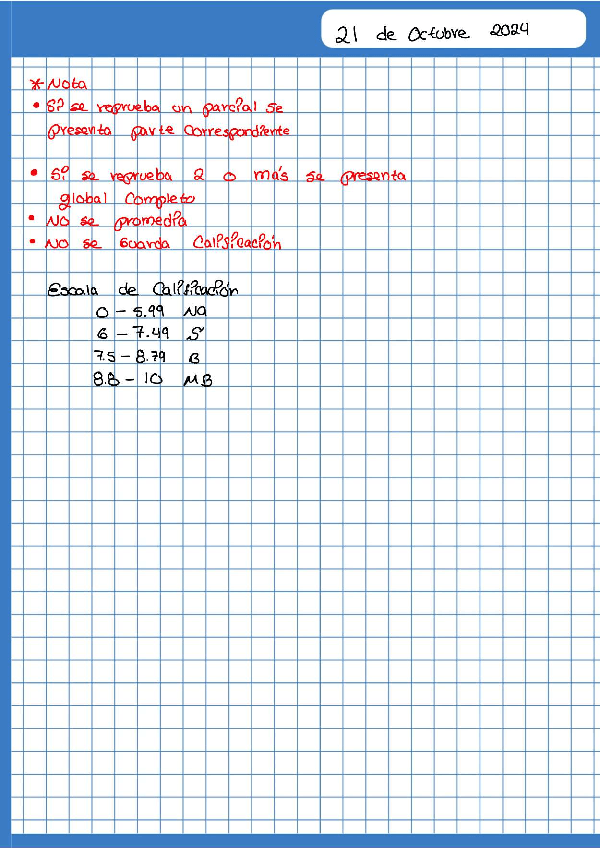 21 de Octubre 2024
* Nota
• Si se reprueba un parcial se
presenta parte correspondiente
• Si se reprueba 2 o más se presenta
global completo
• NO se promedia
• NO se Guarda Calificación
Escala de Calificación
0 - 5.99 NA
6 - 7.49 S
7.5 - 8.79 B
8.8 - 10 MB